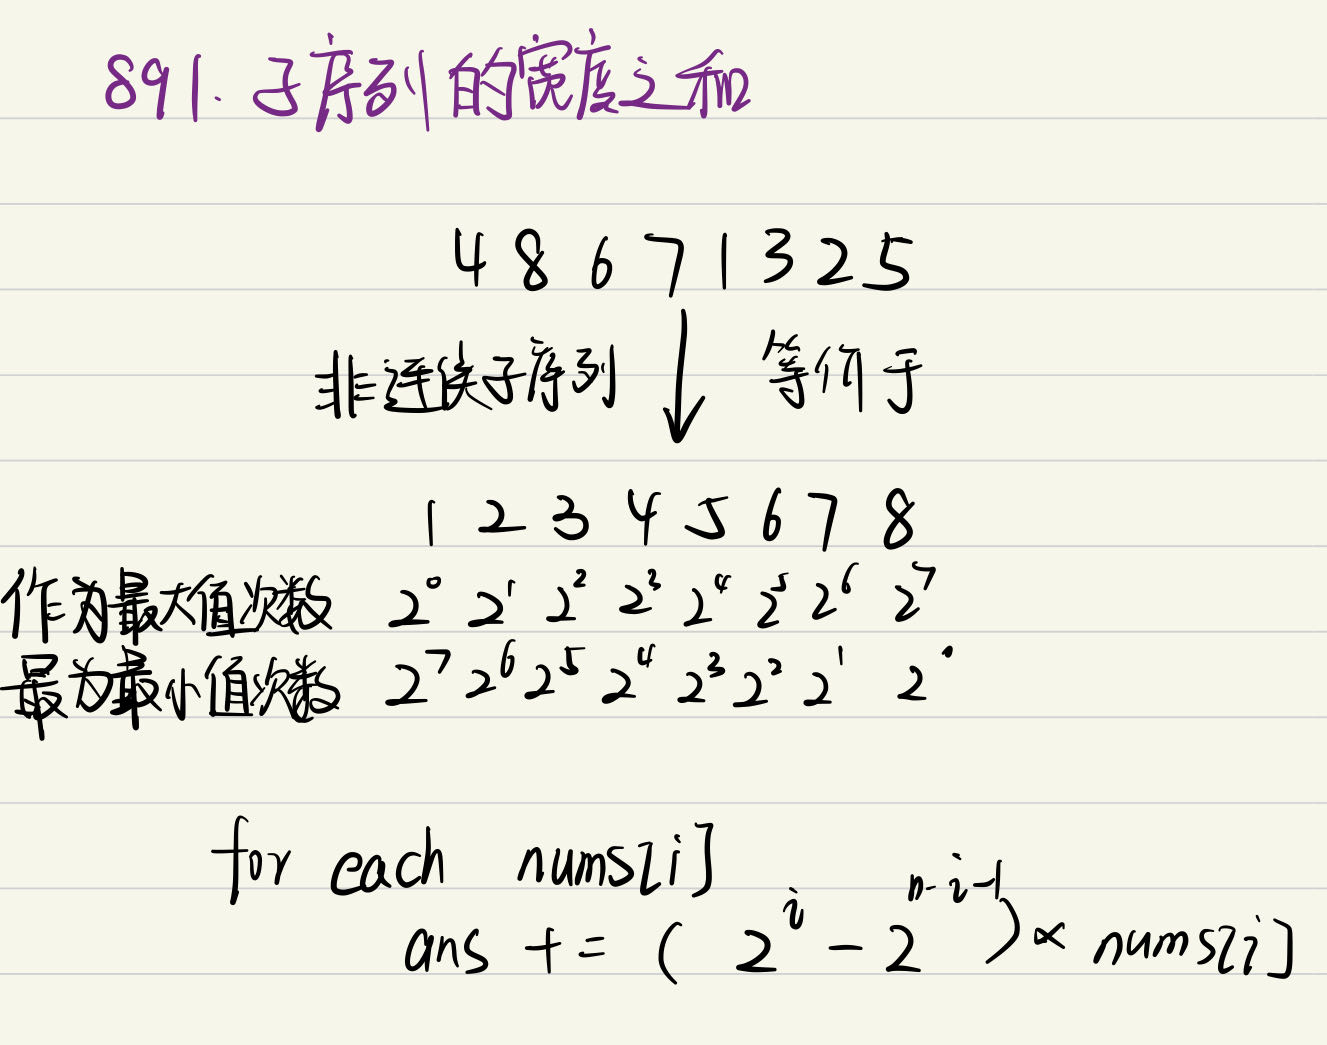 891. 子序列的宽度之和
4 8 6 7 1 3 2 5
非连续子序列 等价于
1 2 3 4 5 6 7 8
作为最大值次数 2⁰ 2¹ 2² 2³ 2⁴ 2⁵ 2⁶ 2⁷
最为最小值次数 2⁷ 2⁶ 2⁵ 2⁴ 2³ 2² 2¹ 2⁰
for each nums[i]
ans += (2ⁱ - 2ⁿ⁻ⁱ⁻¹) × nums[i]